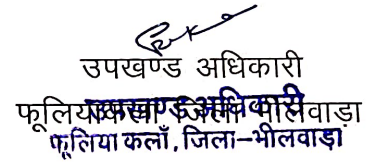 उपखण्ड अधिकारी
फूलियाकलां जिला भीलवाड़ा
उपखण्ड अधिकारी
फूलिया कलाँ, जिला-भीलवाड़ा